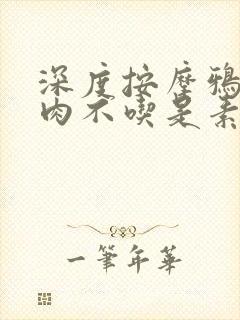 深度按摩鴉
肉不喫是素
一筆年華